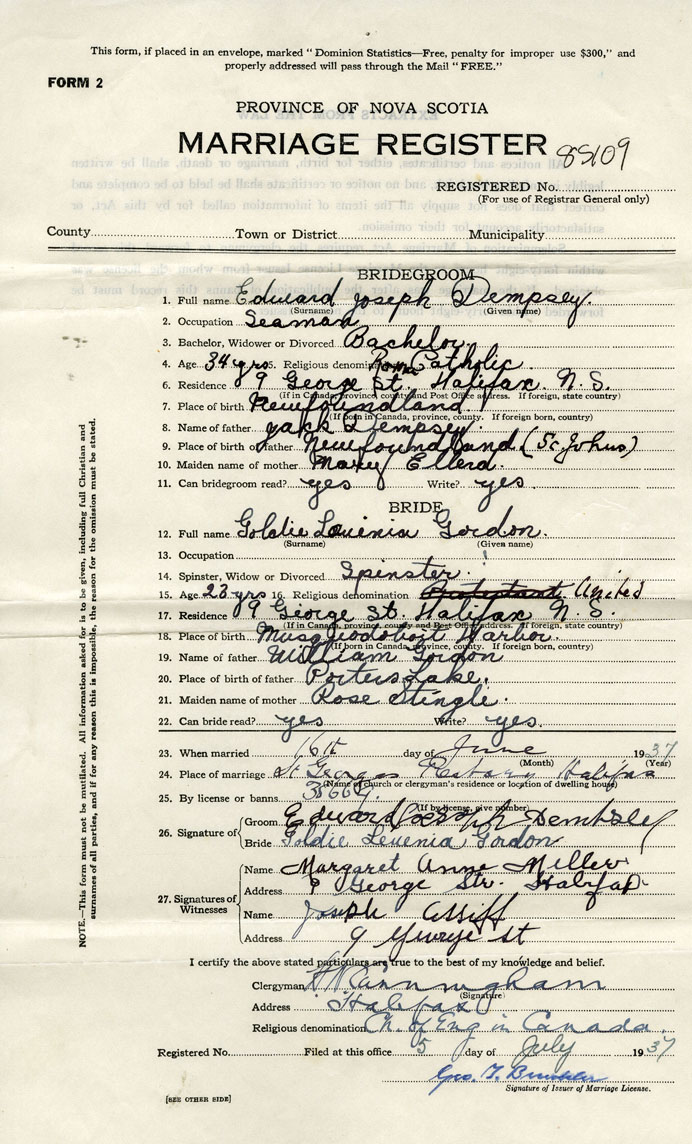 This form, if placed in an envelope, marked "Dominion Statistics—Free, penalty for improper use $300," and
properly addressed will pass through the Mail "FREE."
FORM 2
PROVINCE OF NOVA SCOTIA
MARRIAGE REGISTER 85109
REGISTERED No.
(For use of Registrar General only)
County Town or District Municipality
BRIDEGROOM
1. Full name Edward Joseph Dempsey.
(Surname) (Given name)
2. Occupation Seaman
3. Bachelor, Widower or Divorced Bachelor.
4. Age 34 yrs 5. Religious denomination Roman Catholic
6. Residence 9 George St. Halifax. N.S.
(If in Canada, province, county and Post Office address. If foreign, state country)
7. Place of birth Newfoundland.
(If born in Canada, province, county. If foreign born, country)
8. Name of father Jack Dempsey.
9. Place of birth of father Newfoundland (St. Johns)
10. Maiden name of mother Mary Ellerd.
11. Can bridegroom read? yes Write? yes.
BRIDE
12. Full name Goldie Levenia Gordon.
(Surname) (Given name)
13. Occupation
14. Spinster, Widow or Divorced Spinster.
15. Age 23 yrs 16. Religious denomination Protestant United
17. Residence 9 George St. Halifax N.S.
(If in Canada, province, county and Post Office address. If foreign, state country)
18. Place of birth Musquodoboit Harbor.
(If born in Canada, province, county. If foreign born, country)
19. Name of father William Gordon
20. Place of birth of father Porters Lake.
21. Maiden name of mother Rose Stingle.
22. Can bride read? yes Write? yes.
23. When married 16th day of June 1937
(Month) (Year)
24. Place of marriage St Georges Rectory Halifax
(Name of church or clergyman's residence or location of dwelling house)
25. By license or banns
(If by license, give number)
26. Signature of Groom Edward Joseph Dempsey
Bride Goldie Levenia Gordon
27. Signatures of Witnesses
Name Margaret Anne Miller
Address 9 George Str. Halifax
Name Joseph Assiff
Address 9 George st
I certify the above stated particulars are true to the best of my knowledge and belief.
Clergyman Cunningham
(Signature)
Address Halifax
Religious denomination Ch. of Eng in Canada.
Registered No. Filed at this office 5 day of July 1937
Geo. T.
Signature of Issuer of Marriage License.
[SEE OTHER SIDE]
NOTE.—This form must not be mutilated. All information asked for is to be given, including full Christian and
surnames of all parties, and if for any reason this is impossible, the reason for the omission must be stated.